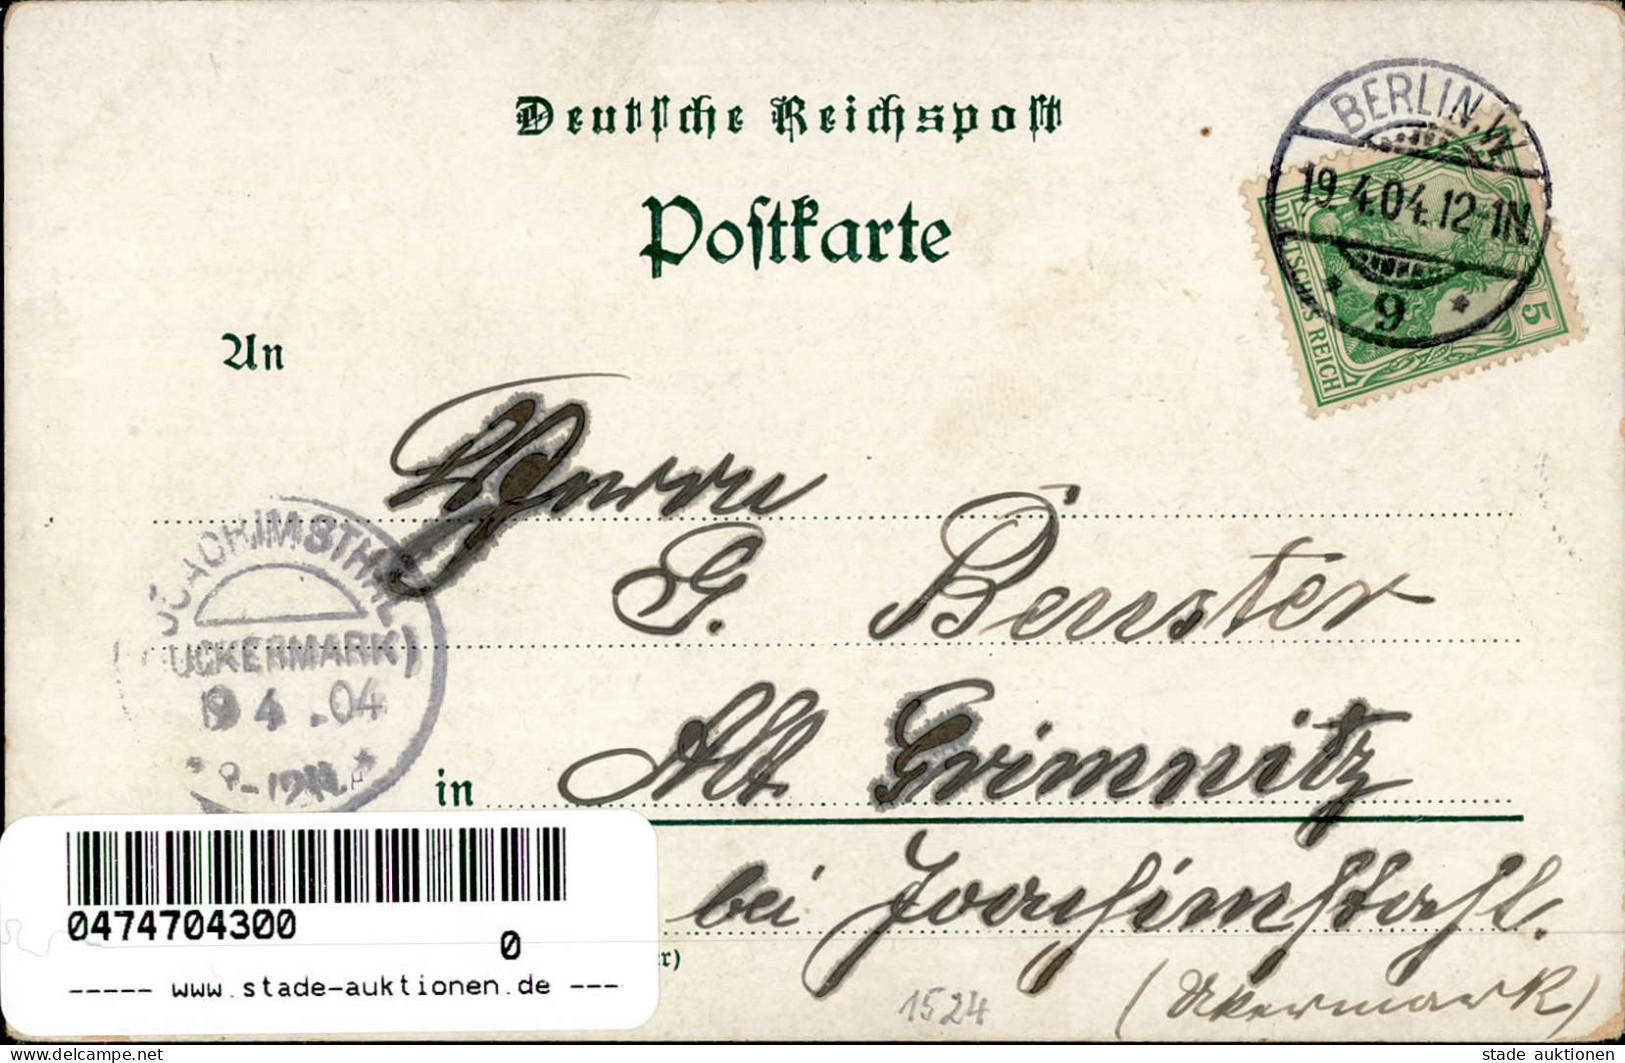 Deutsche Reichspost
Postkarte
BERLIN, W.
19.4.04.12-1N.
* 9 *
DEUTSCHES REICH
5
An
Herrn
G. Benster
JOACHIMSTHAL
(UCKERMARK)
19 4 .04
in Alt Grimnitz
bei Joachimstahl.
(Ukermark)
1524
0474704300
0
----- www.stade-auktionen.de ---
stade auktionen